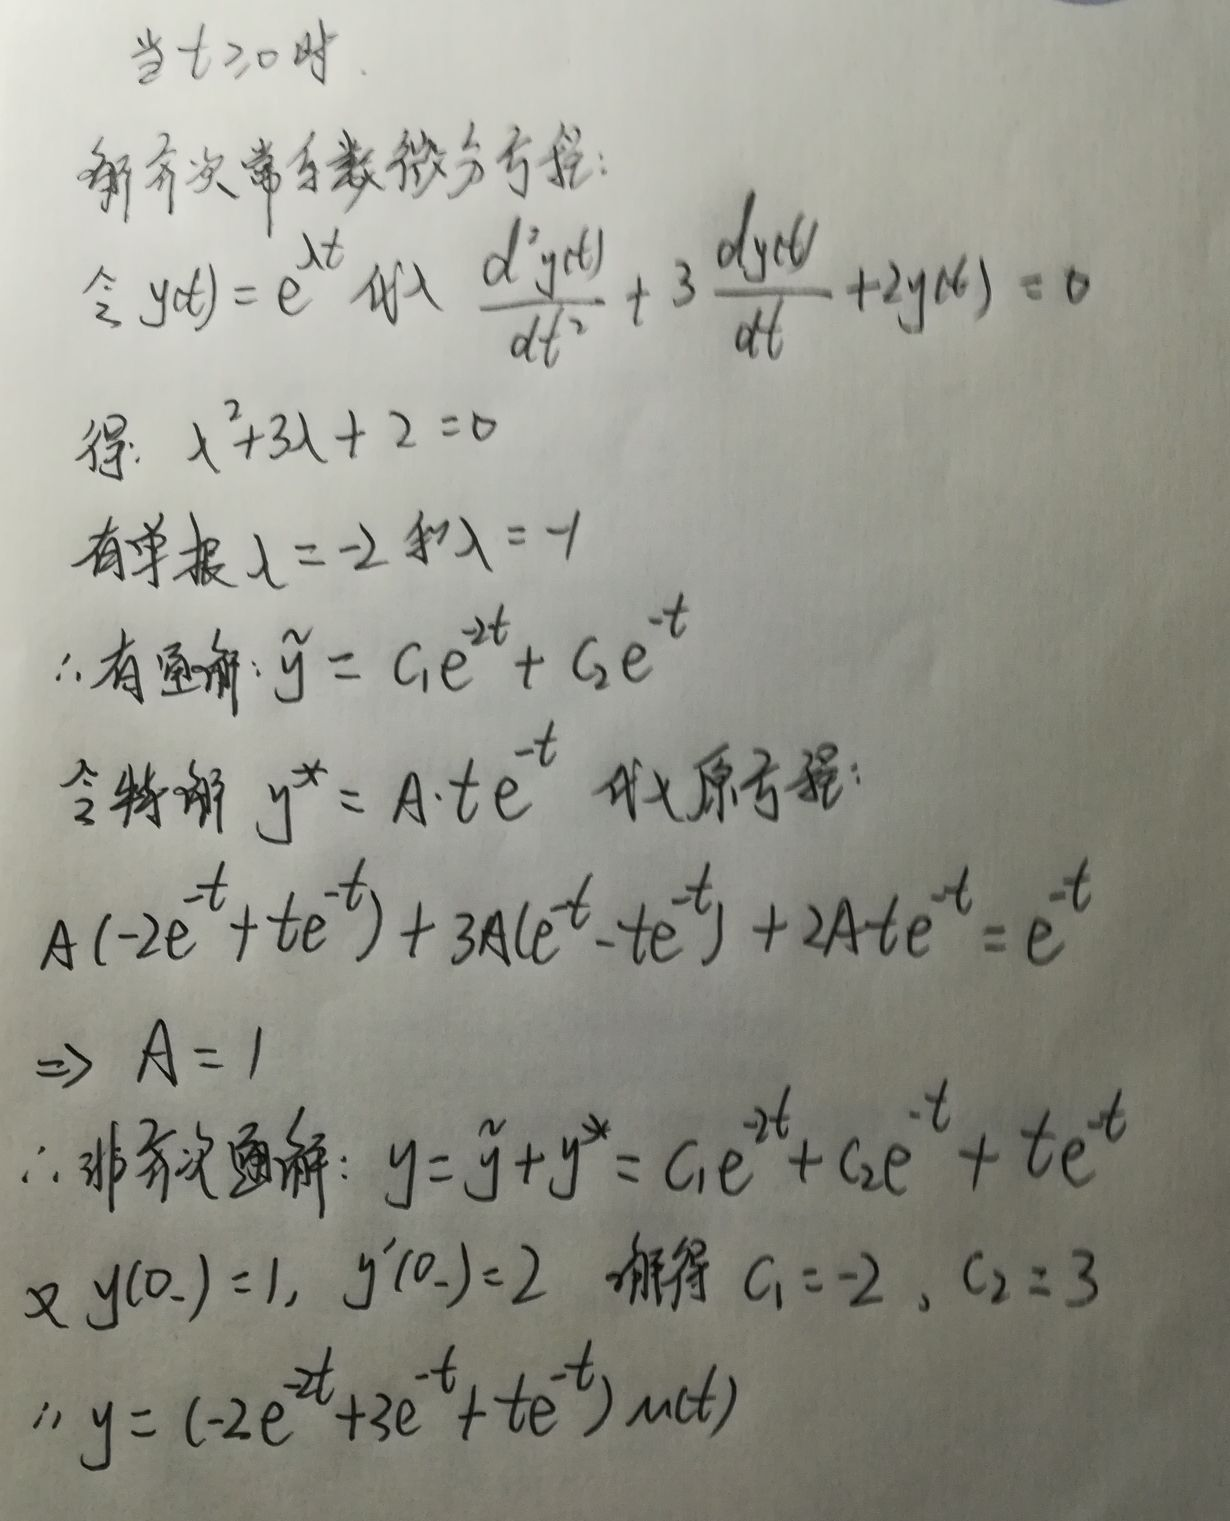 当 t≥0 时.
解齐次常系数微分方程:
令 y(t) = e^{λt} 代入 \frac{d²y(t)}{dt²} + 3\frac{dy(t)}{dt} + 2y(t) = 0
得: λ²+3λ+2=0
有单根 λ=-2 和 λ=-1
∴有通解: ỹ = C₁e^{-2t} + C₂e^{-t}
令特解 y* = A·te^{-t} 代入原方程:
A(-2e^{-t}+te^{-t}) + 3A(e^{-t}-te^{-t}) + 2A·te^{-t} = e^{-t}
⇒ A = 1
∴非齐次通解: y = ỹ+y* = C₁e^{-2t}+C₂e^{-t} + te^{-t}
又 y(0₋)=1, y'(0₋)=2 解得 C₁=-2, C₂=3
∴ y = (-2e^{-2t}+3e^{-t}+te^{-t})u(t)